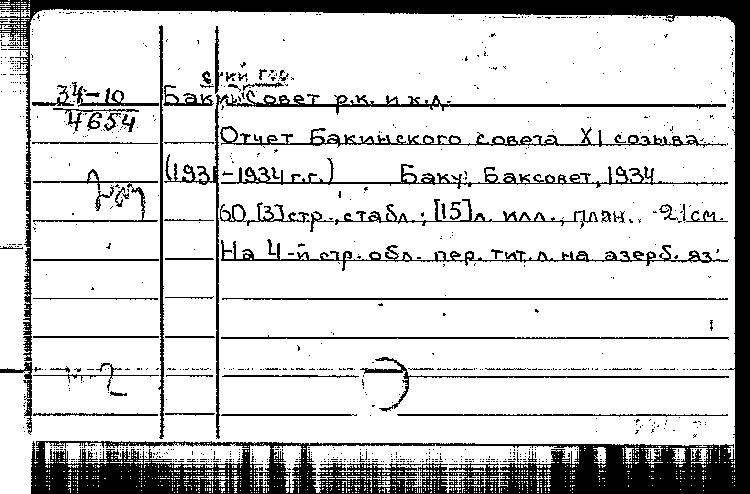 ский гор.
34-10 Бакин Совет р.к. и к.д.
4654
Отчет Бакинского совета XI созыва
(1931-1934 г.г.) Баку, Баксовет, 1934
60, [3] стр., с табл.; [15] л. илл., план. 21 см.
На 4-й стр. обл. пер. тит. л. на азерб. яз.